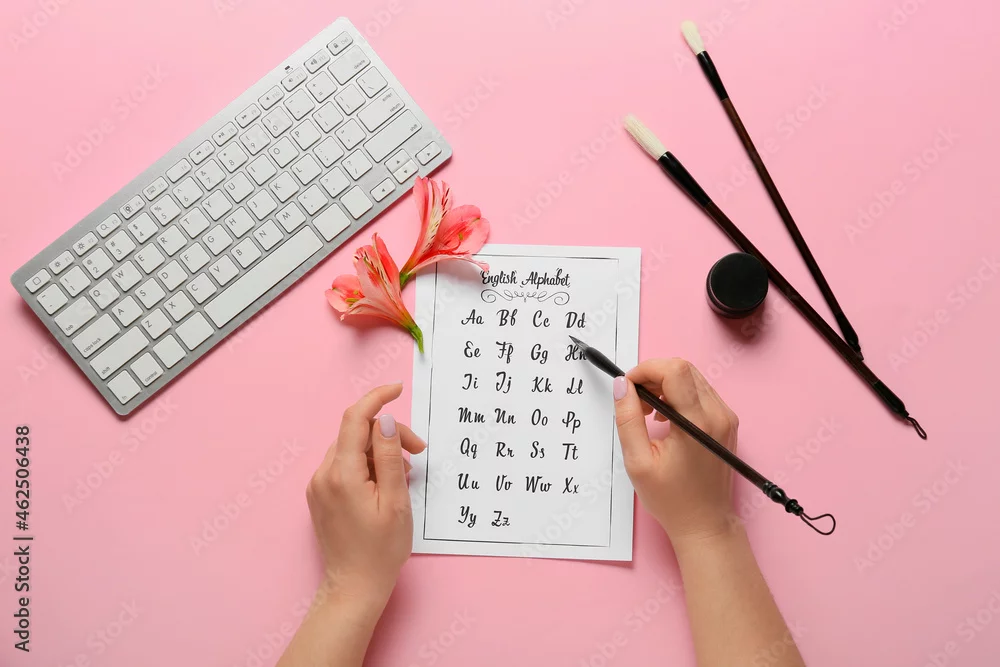 English Alphabet
Aa Bb Cc Dd
Ee Ff Gg Hh
Ii Jj Kk Ll
Mm Nn Oo Pp
Qq Rr Ss Tt
Uu Vv Ww Xx
Yy Zz
Adobe Stock | #462506438